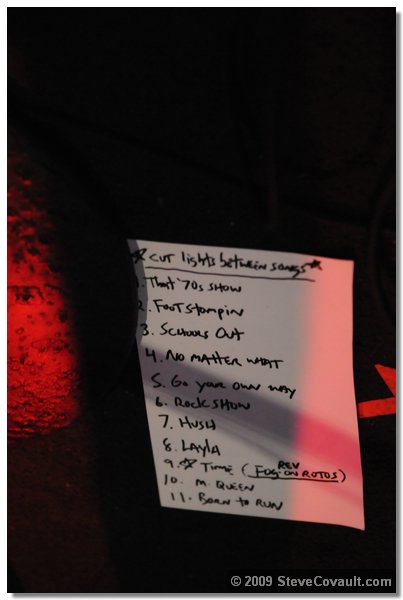 ☆ CUT lights between SONGS ☆
1. That '70s SHOW
2. FOOTSTOMPIN
3. SCHOOLS OUT
4. NO MATTER WHAT
5. GO YOUR OWN WAY
6. ROCK SHOW
7. HUSH
8. LAYLA
9. ☆ TIME (FOG-REV ON ROTOS)
10. M. QUEEN
11. BORN TO RUN
© 2009 SteveCovault.com